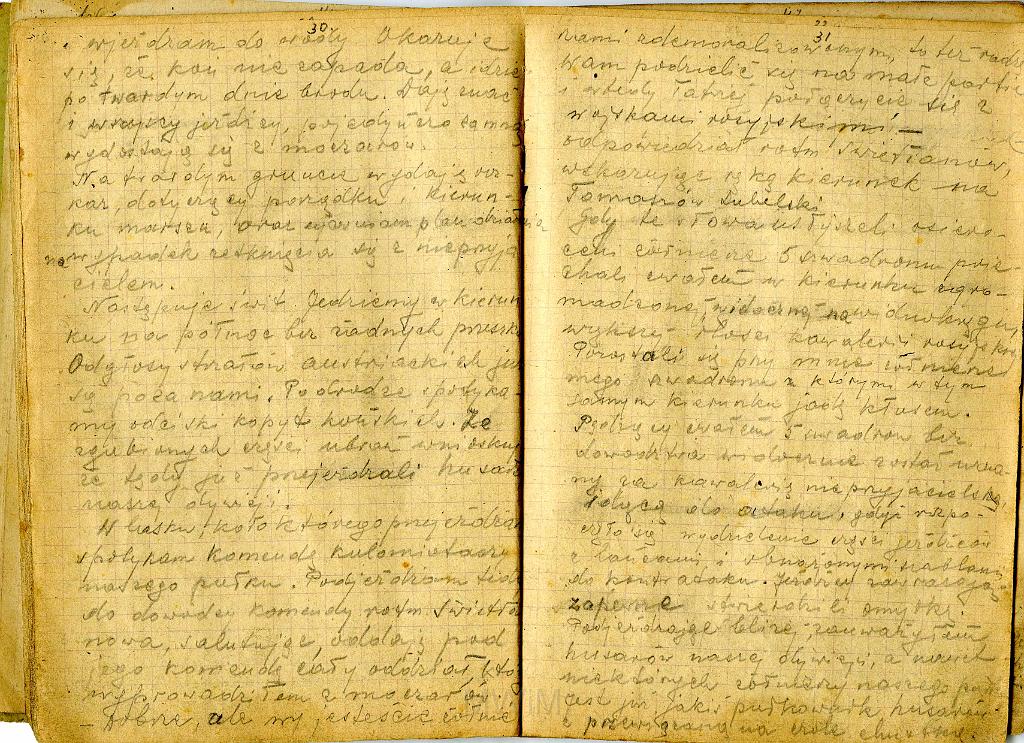 30
wjeżdżam do wody Okazuje
się, że koń nie zapada, a idzie
po twardym dnie brodu. Daję znać
i wszyscy jeźdźcy, pojedyńczo za mną
wydostają się z moczarów.
Na twardym gruncie wydaję roz-
kaz, dotyczący porządku i kierun-
ku marszu, oraz plan działania
na wypadek zetknięcia się z nieprzyja
cielem.
Następuje świt. Jedziemy w kierun
ku na północ bez żadnych przeszk
Odgłosy strzałów austriackich już
są poza nami. Po drodze spotyka-
my odciski kopyt końskich. Ze
zgubionych części ubrań wnioskuję
że tędy już przejeżdżali huzarzy
naszej dywizji.
W lasku, koło którego przejeżdżam
spotykam komendę kulomiotaczy
naszego pułku. Podjeżdżam
do dowódcy komendy rotm. Świetła
nowa, salutując, oddaję pod
jego komendę cały oddział, któ
wyprowadziłem z moczarów.
– Dobrze, ale wy jesteście żołnie
31
rzami zdemoralizowanymi, to też radzę
Wam podzielić się na małe partie
i wtedy łatwiej połączycie się z
wojskami rosyjskimi –
odpowiedział rotm Świetłanow,
wskazując ręką kierunek na
Tomaszów Lubelski
Gdy te słowa usłyszeli osiero-
ceni żołnierze 5 szwadronu poje-
chali cwałem w kierunku zgro-
madzonej, widocznej na widnokręgu,
większej ilości kawalerii rosyjskiej
Pozostali się przy mnie żołnierze
mego szwadronu z którymi w tym
samym kierunku jadę kłusem.
Pędzący cwałem 5 szwadron bez
dowództwa widocznie został uzna
ny za kawalerię nieprzyjacielską,
idącą do ataku, gdyż rozpo-
częło się wydzielenie części jeźdźców
z lancami i obnażonymi szablami
do kontrataku. Jeźdźcy zawracają
zapewne stwierdzili omyłkę.
Podjeżdżając bliżej zauważyłem
huzarów naszej dywizji, a nawet
niektórych żołnierzy naszego pułku
jest jakiś pułkownik huzarów
z przewiązaną na czole chustką.